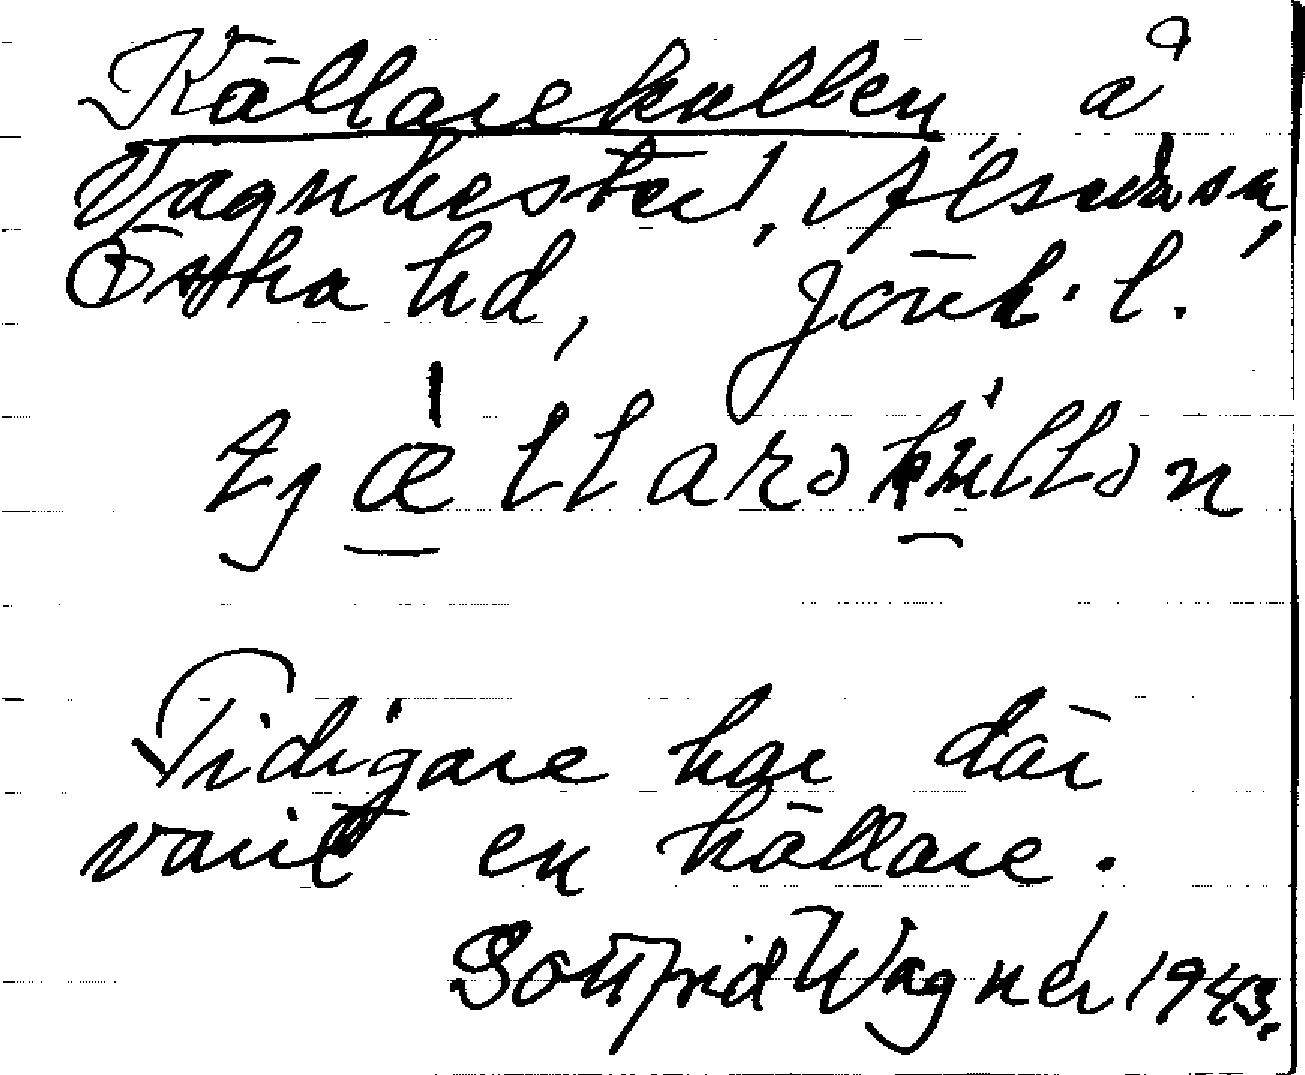 Källarekullen, å
Vagnhester, Alseda sn,
Östra hd, Jönk. l.
tjællarəkullən
Tidigare har där
varit en källare.
Gottfrid Wagnér 1943.